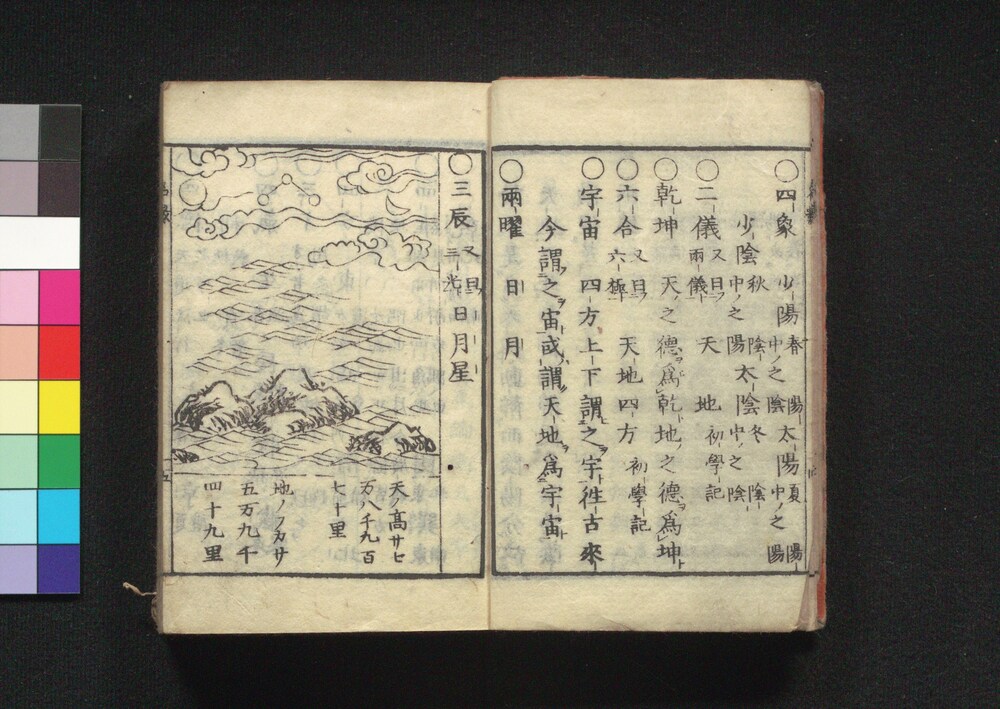 〇四象 少陽春陰中之陽太陽夏陽中之陽
少陰秋陽中之陰太陰冬陰中之陰
〇二儀又曰兩儀 天地初學記
〇乾坤 天ノ之德ヲ爲乾ト地ノ之德ヲ爲坤ト
〇六合又曰六極 天地四方初學記
〇宇宙 四方上下謂之ヲ宇往古來
今謂之ヲ宙或謂天地ヲ爲宇宙ト
〇兩曜 日月
〇三辰又曰三光 日月星
天ノ高サ七
万八千九百
七十里
地ノフカサ
五万九千
四十九里